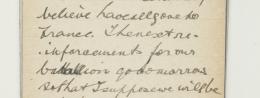 believe have all gone to
France. The next re-
inforcements for our
battalion go tomorrow
so that I suppose we will be